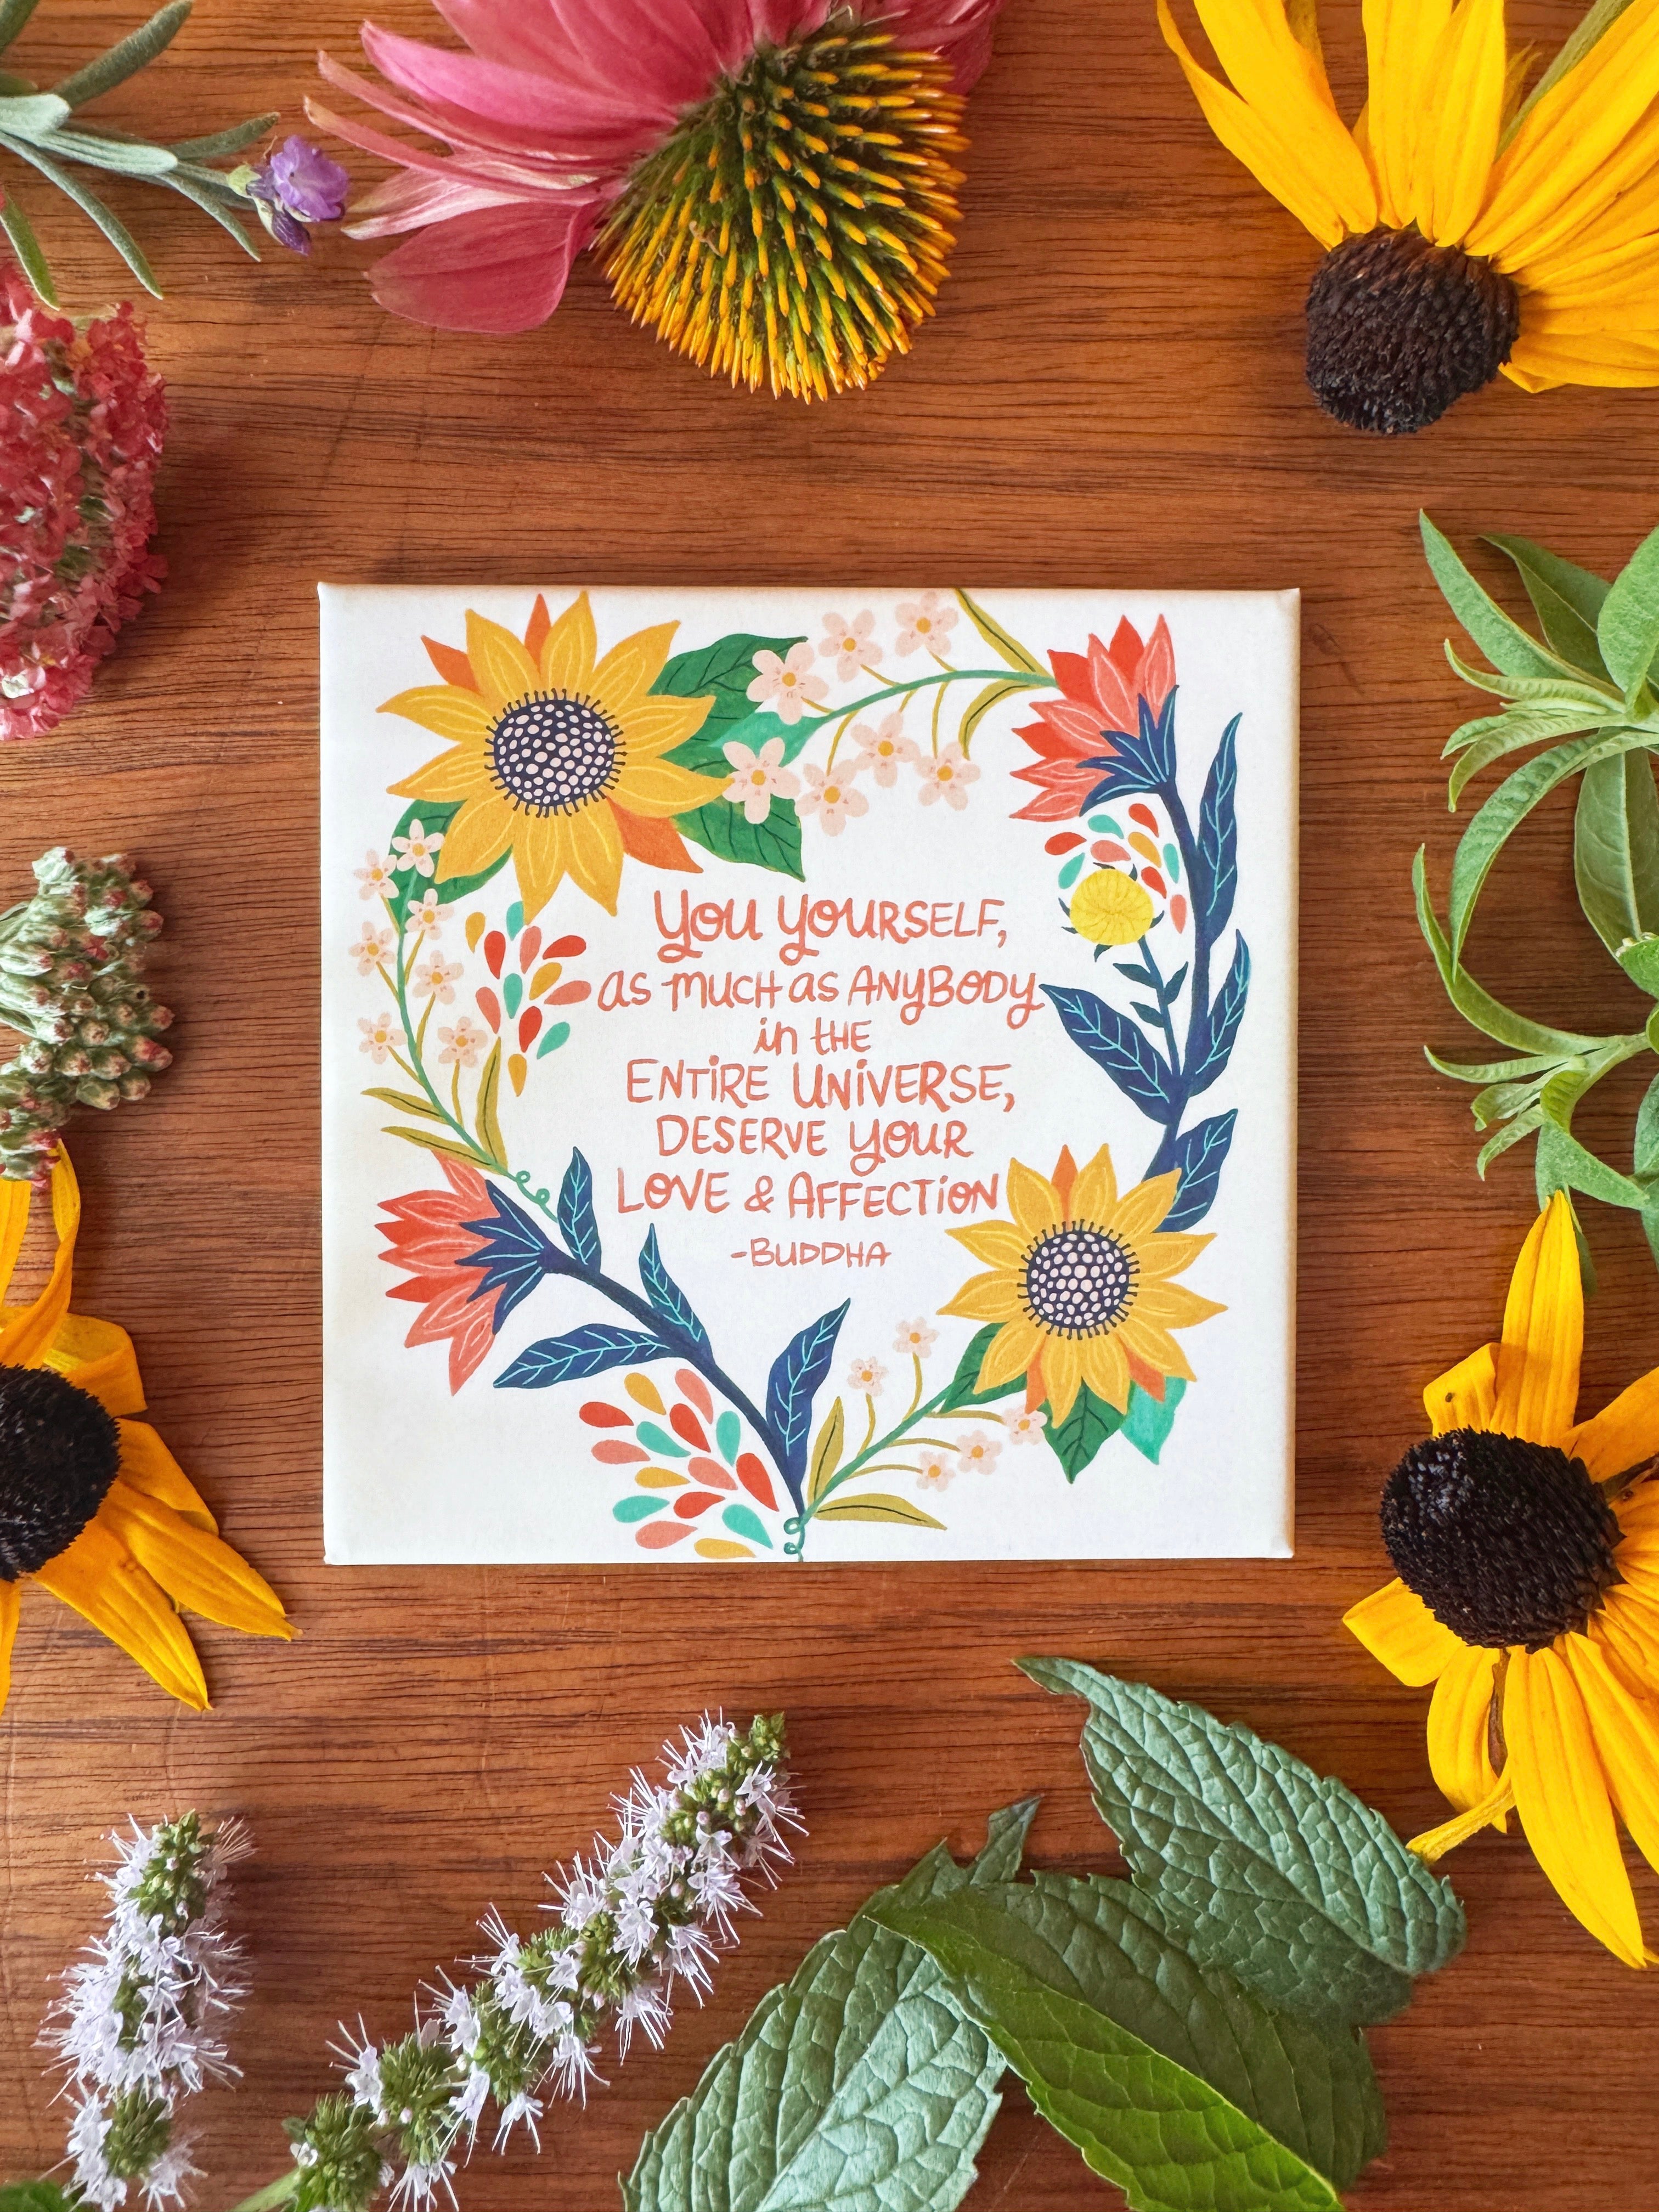 You yourself,
as much as anybody
in the
entire universe,
deserve your
love & affection
-Buddha